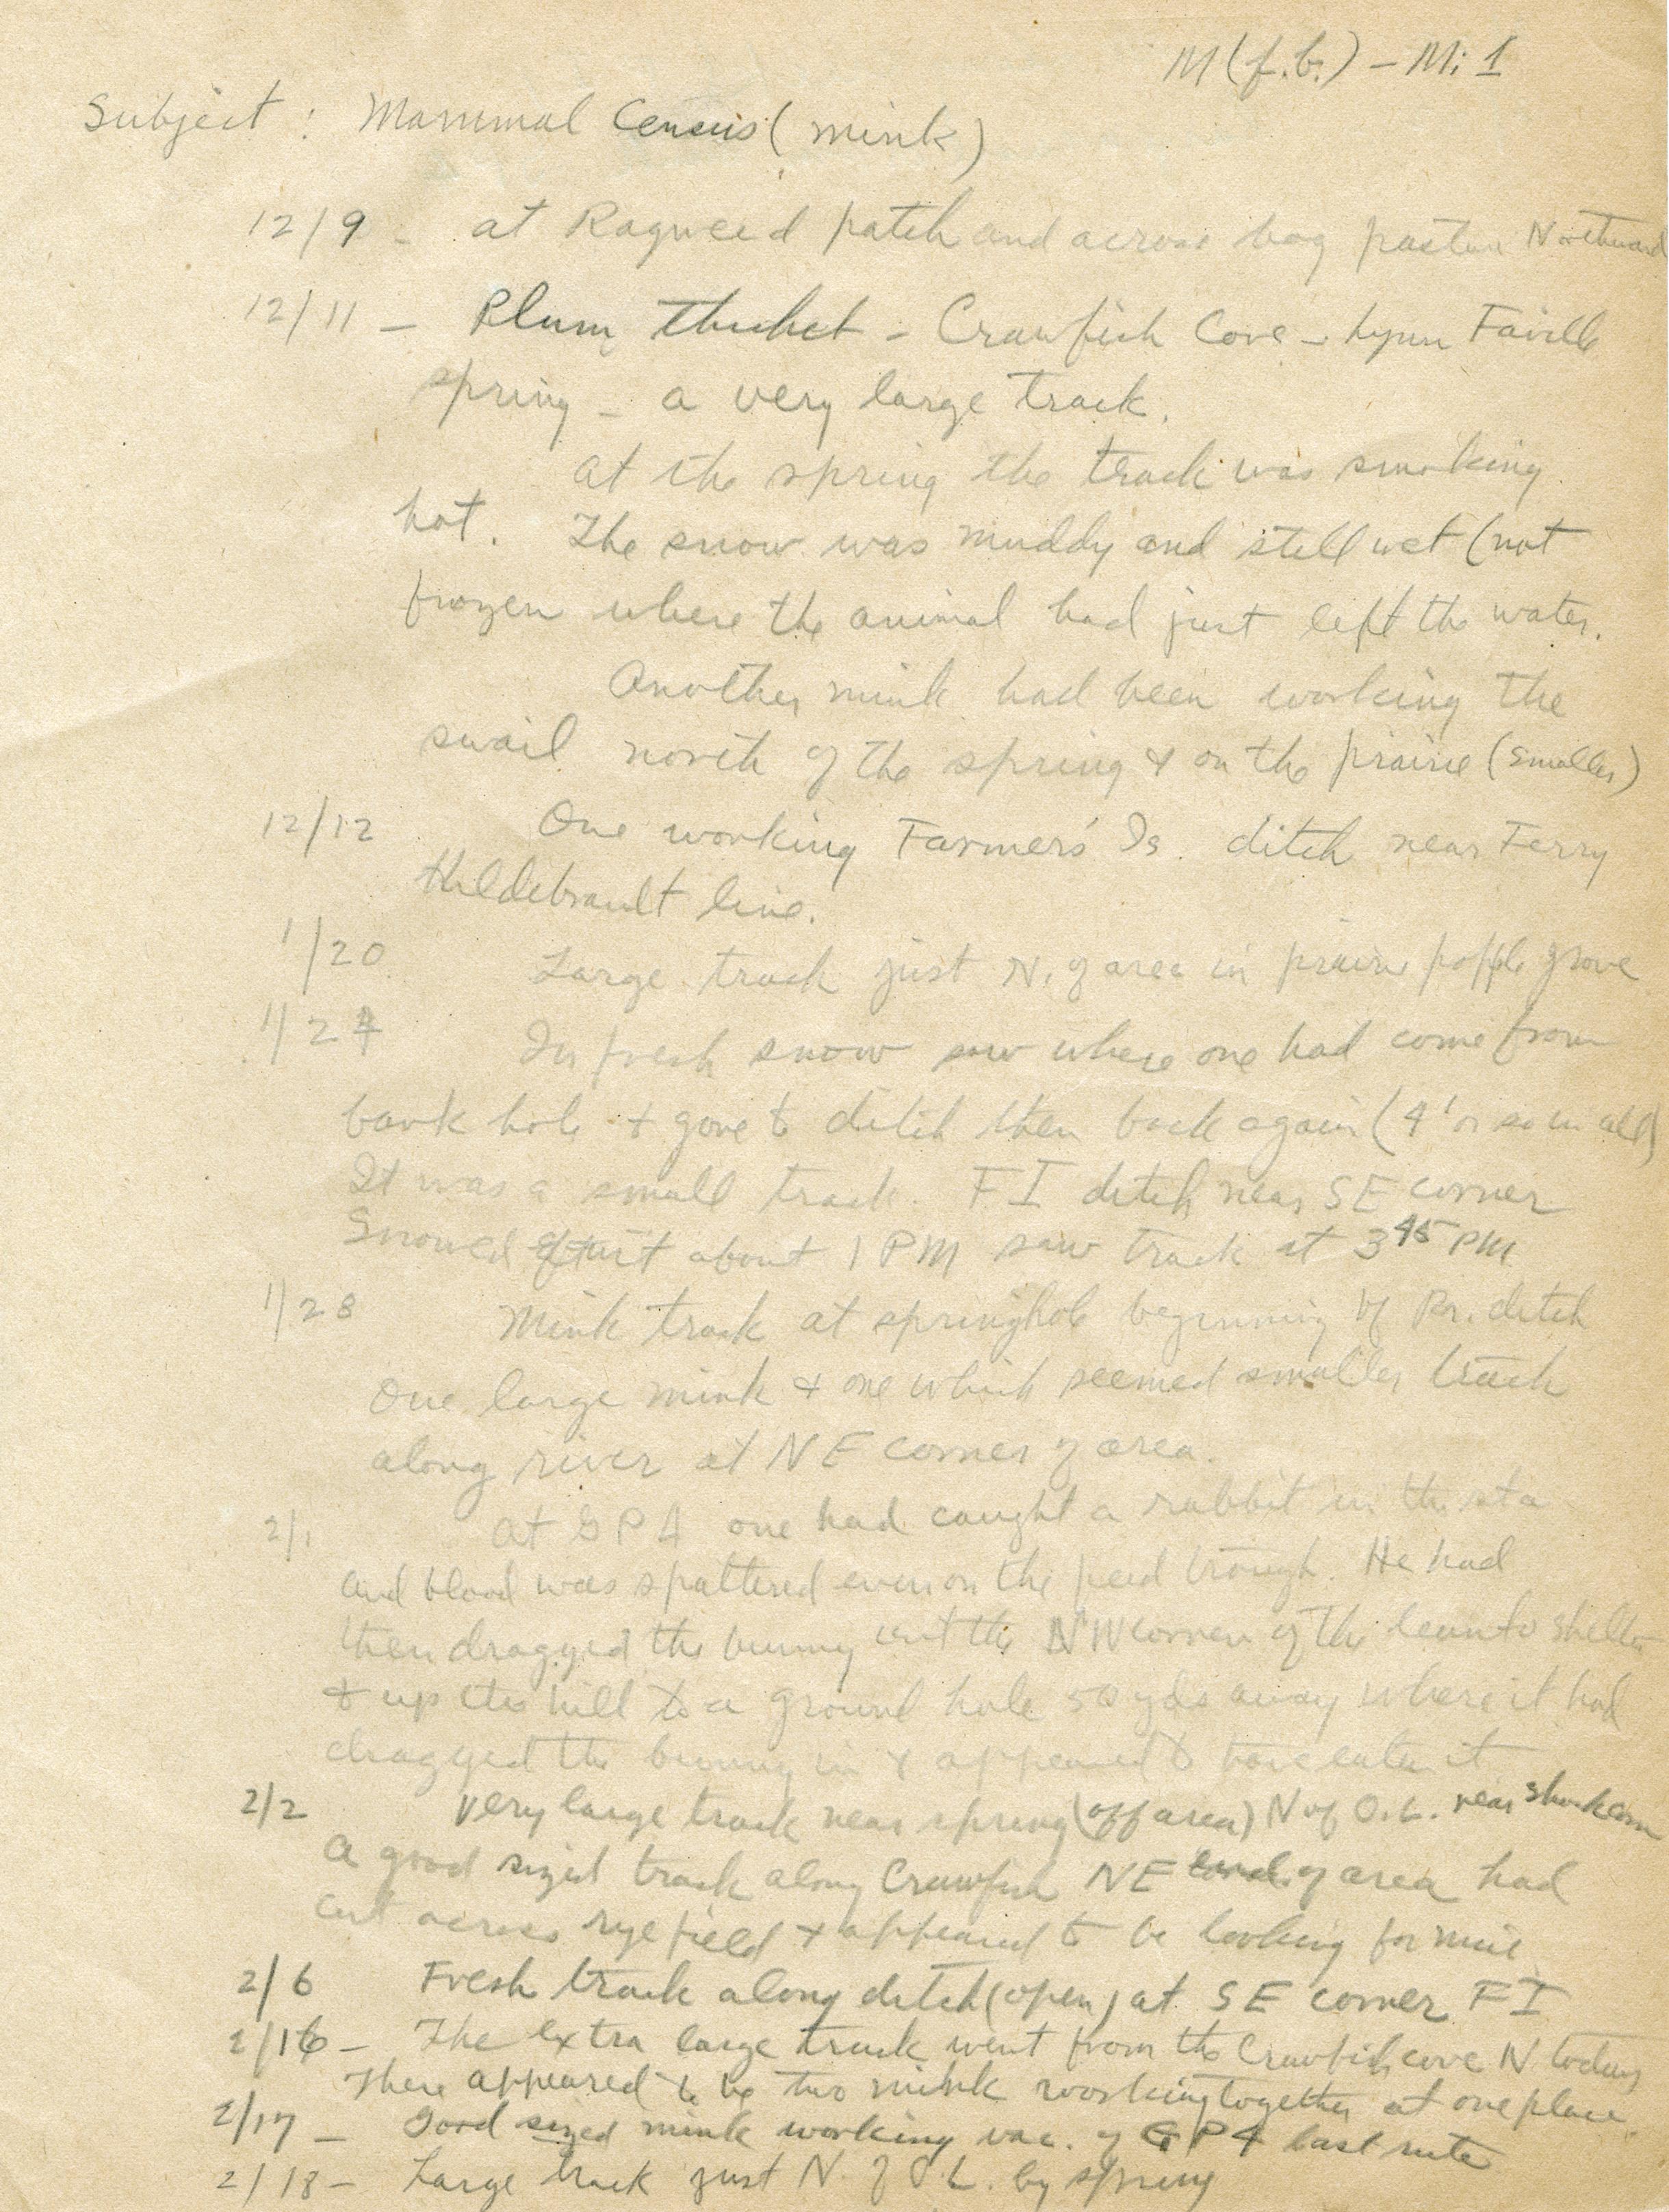 M(f.b.) - Mi 1
Subject : Mammal Census (mink)
12/9 - at Ragweed patch and across hog pasture Northward
12/11 - Plum thicket - Crawfish Cove - Lynn Faville
spring - a very large track.
At the spring the track was smoking
hot. The snow was muddy and still wet (not
frozen where the animal had just left the water.
Another mink had been working the
swail north of the spring & on the prairie (smaller)
12/12 One working Farmers' Is. ditch near Ferry
Hildebrandt line.
1/20 Large track just N. of area in prairie popple grove
1/24 In fresh snow saw where one had come from
bank hole & gone to ditch then back again (4' or so in all)
It was a small track. F I ditch near SE corner
Snowed start about 1 PM saw track at 3 45 PM
1/28 Mink track at springhole beginning of Pr. ditch
One large mink & one which seemed smaller track
along river at NE corner of area.
2/1 At G P 4 one had caught a rabbit in the sta
and blood was spattered even on the feed trough. He had
then dragged the bunny out the NW corner of the leanto shelter
& up the hill to a ground hole 50 yds away where it had
dragged the bunny in & appeared to have eaten it
2/2 Very large track near spring (off area) N of O.L. near shock corn
A good sized track along Crawfish NE of area had
cut across rye field & appeared to be looking for mice
2/6 Fresh track along ditch (open) at SE corner F I
2/16 - The extra large track went from the Crawfish cove N today
There appeared to be two mink working together at one place
2/17 - Good sized mink working vac. of G P 4 last nite
2/18 - Large track just N. of O L. by spring